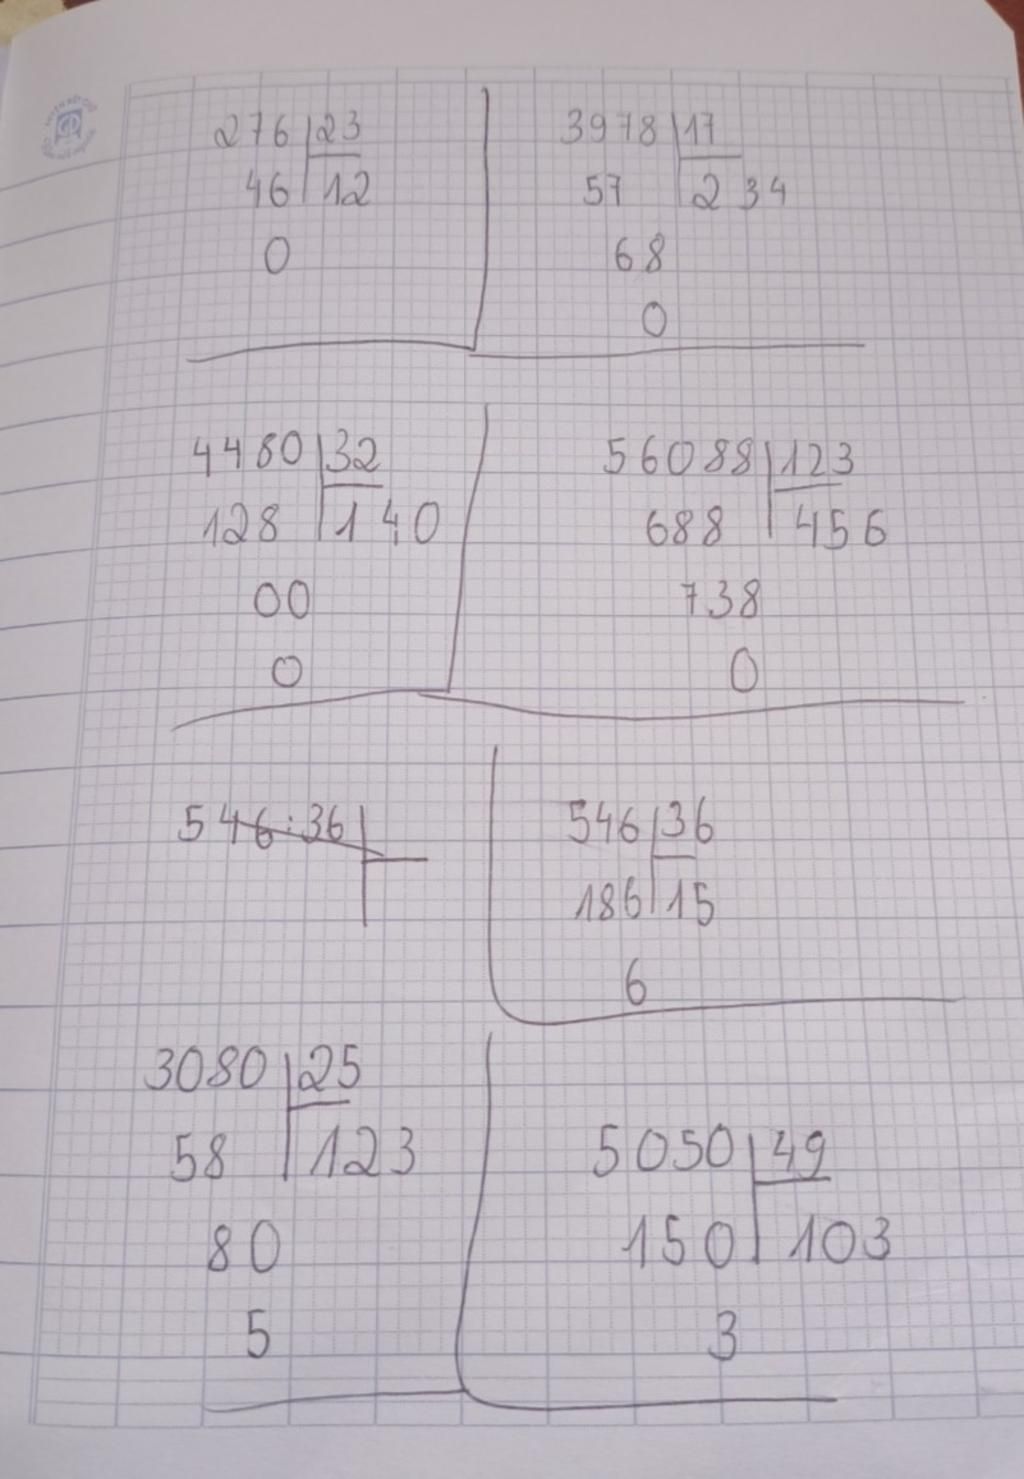 276 23
46 12
0
3978 17
57 234
68
0
4480 32
128 140
00
0
56088 123
688 456
738
0
546:36
546 36
186 15
6
3080 25
58 123
80
5
5050 49
150 103
3